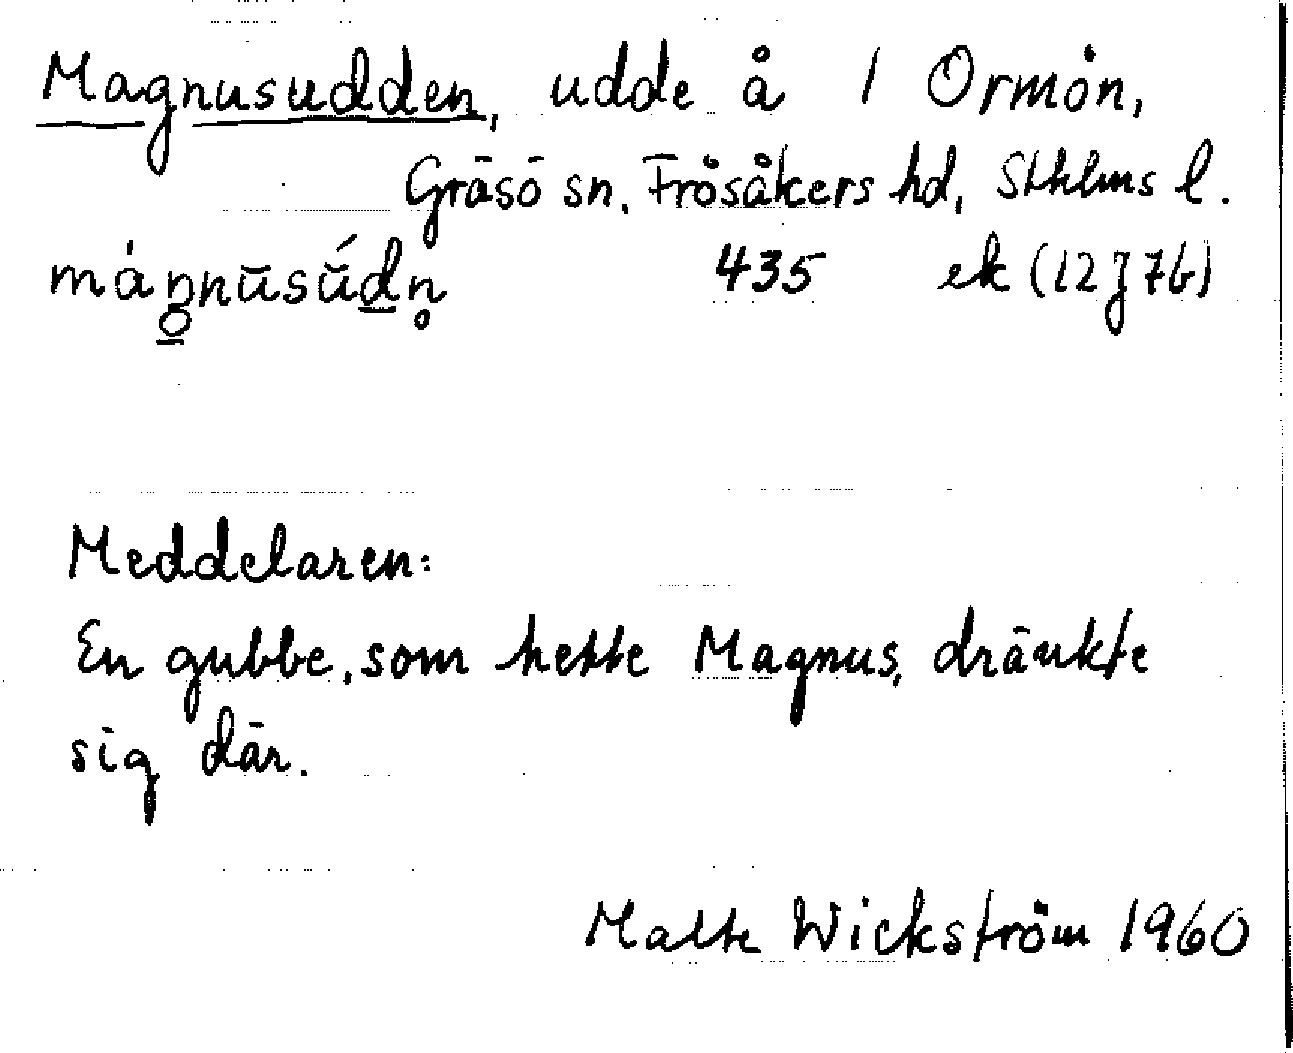 Magnusudden, udde å / Ormön,
Gräsö sn, Frösåkers hd, Sthlms l.
435 ek (12J7b)
Meddelaren:
En gubbe, som hette Magnus, dränkte
sig där.
Malte Wickström 1960